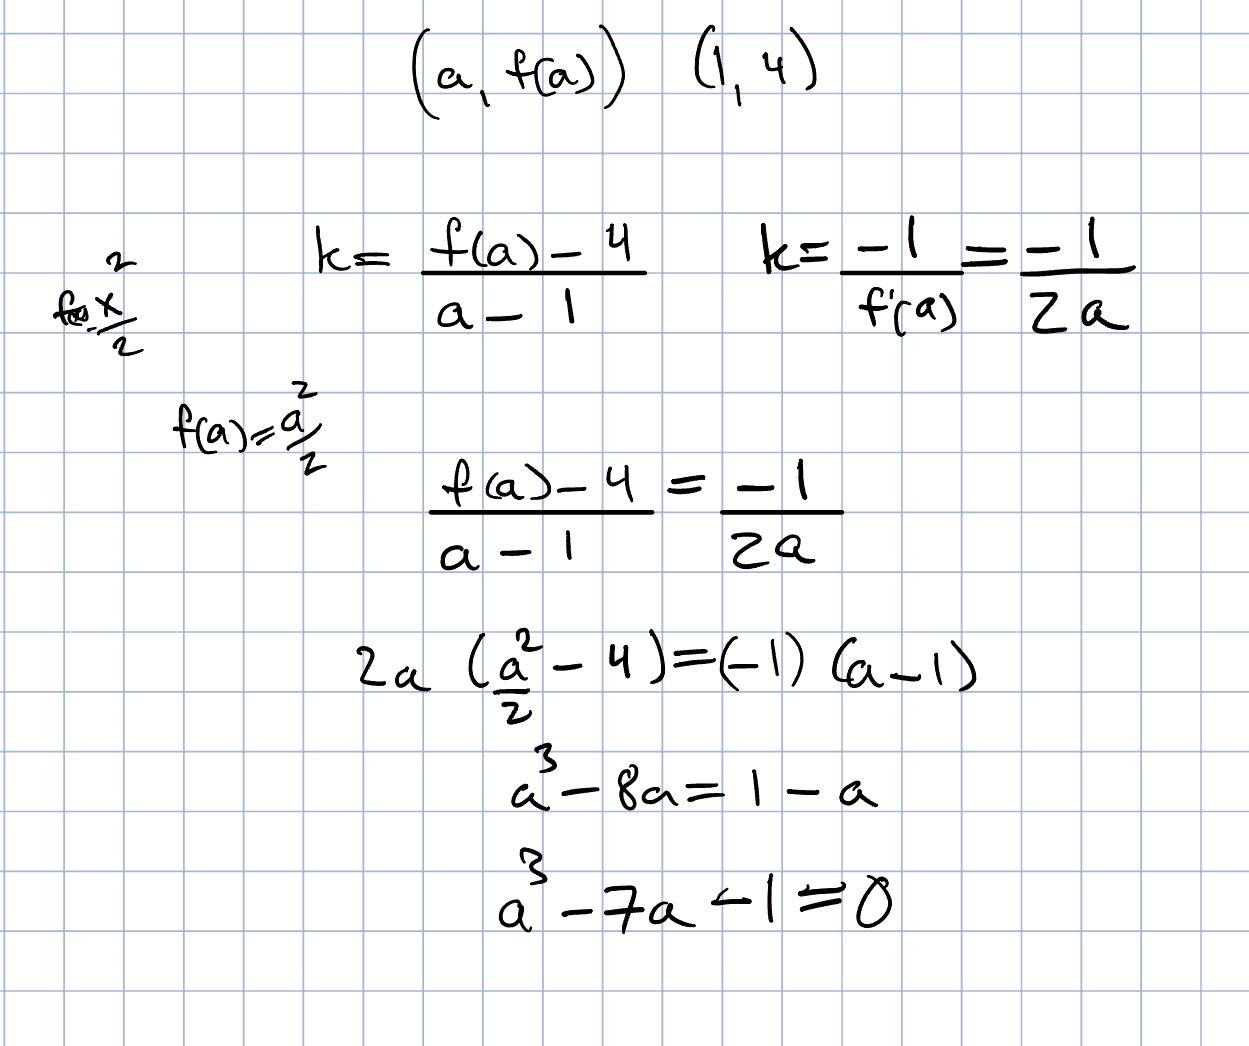 (a, f(a)) (1, 4)
k = (f(a) - 4)/(a - 1) k = -1/f'(a) = -1/2a
x²/2
f(a) = a²/2
(f(a) - 4)/(a - 1) = -1/2a
2a (a²/2 - 4) = (-1) (a - 1)
a³ - 8a = 1 - a
a³ - 7a - 1 = 0